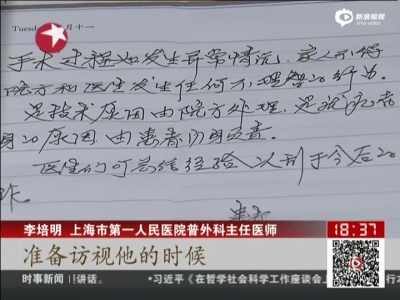 新浪视频
Tuesday
月十一
手术过程如发生异常情况，家人不得
院方和医生发生任何不理智的行为。
是技术原因由院方处理，是我病者
身的原因由患者自身负责。
医生们可总结经验以利于今后的
作。
李培明 上海市第一人民医院普外科主任医师
18:37
准备访视他的时候
时事新闻
讲话。
*习近平《在哲学社会科学工作座谈会上
行本